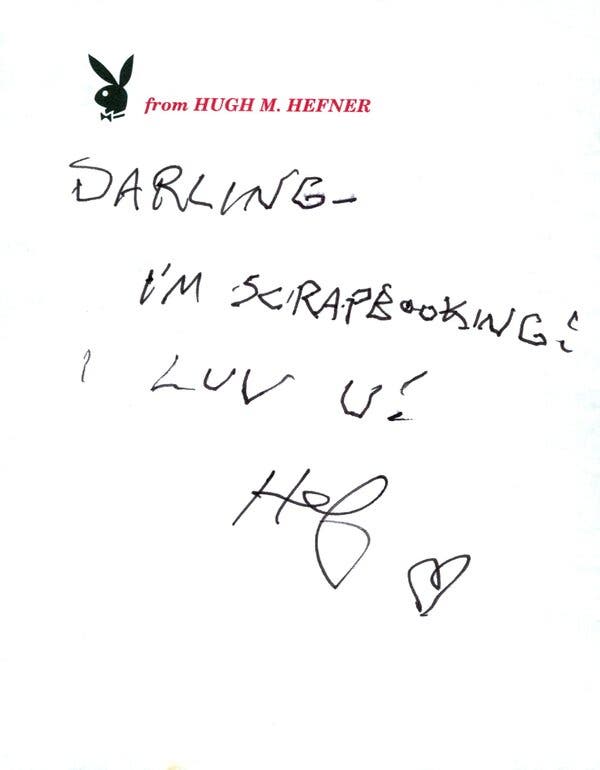 from HUGH M. HEFNER
DARLING-
I'M SCRAPBOOKING!
I LUV U!
Hef